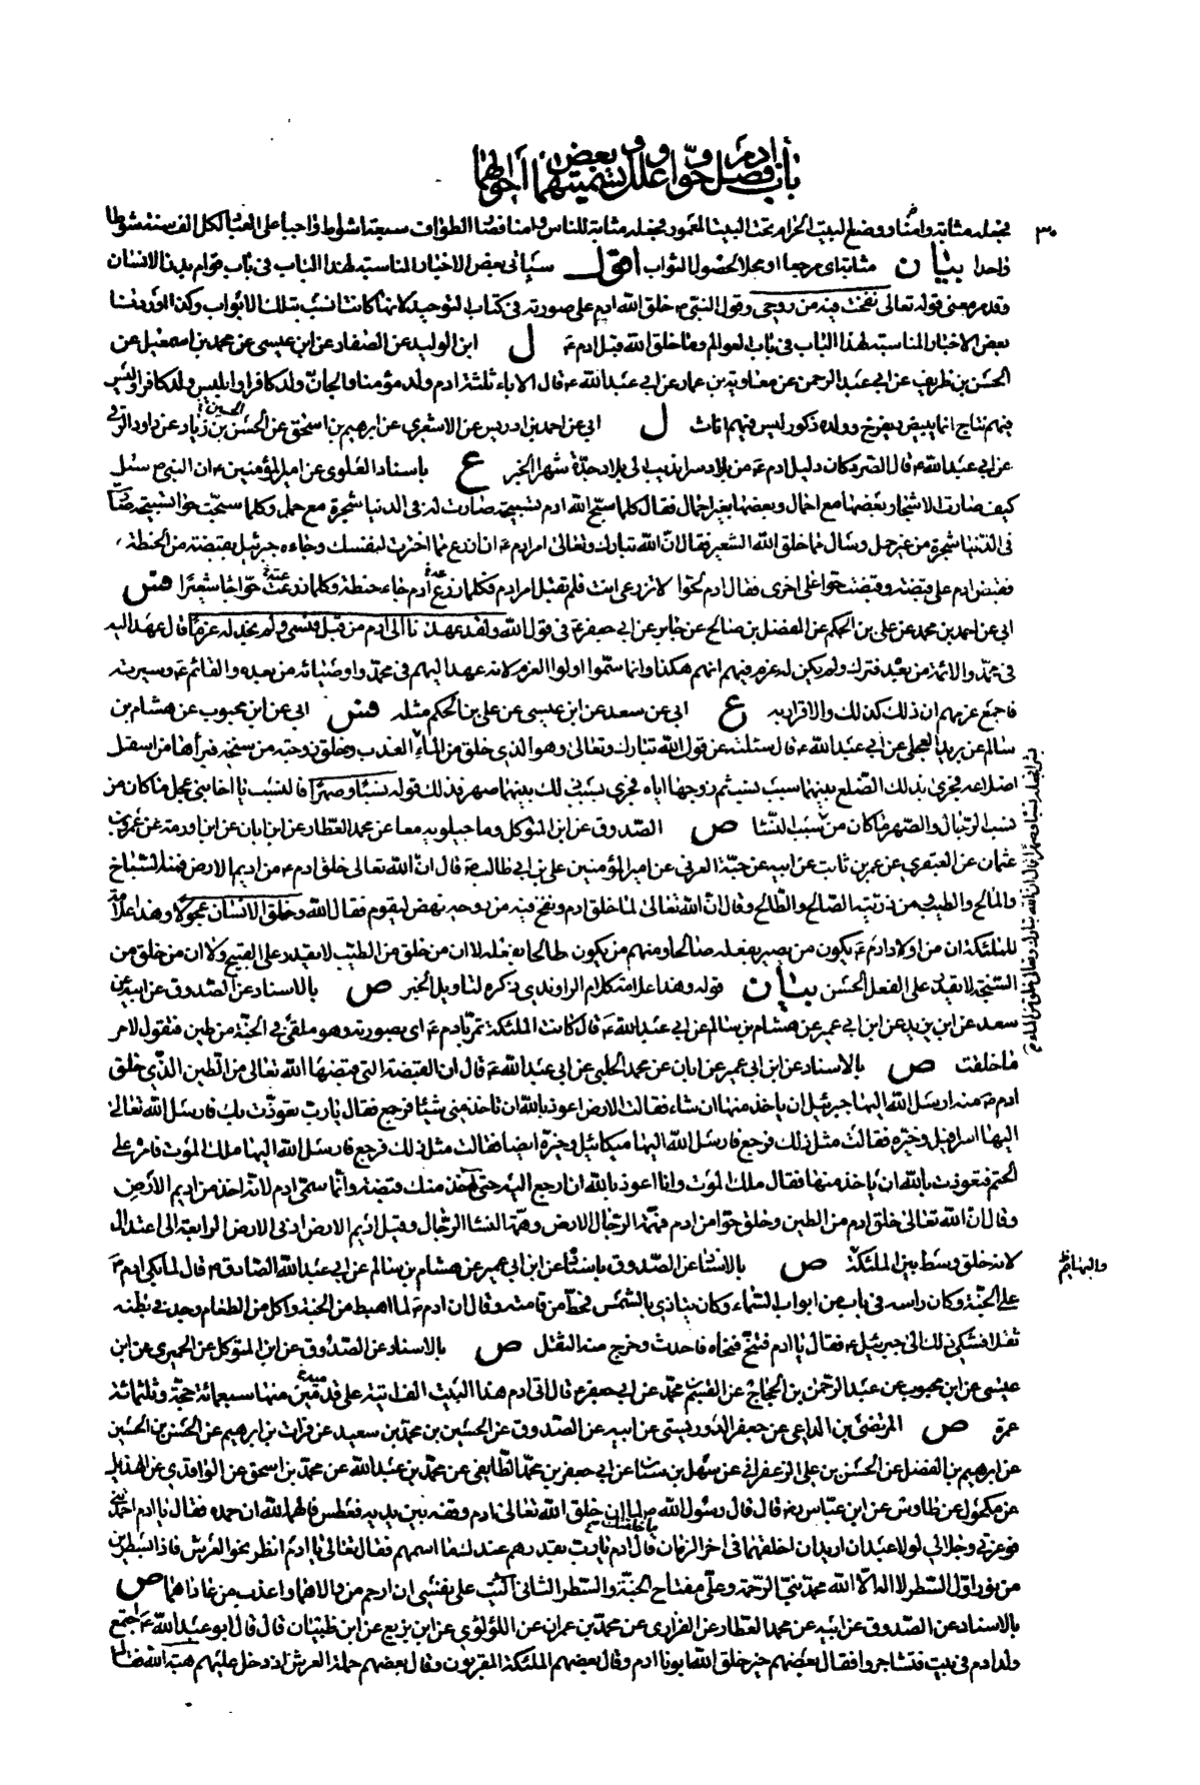 باب فضل ادم و حوا و علل تسميتهما و بعض احوالهما
٣٠
فجعله مثابة وامنا ووضع البيت الحرام تحت البيت المعمور فجعله مثابة للناس وامنا فصار الطواف سبعة اشواط واجبا على العباد لكل الف سنة شوطا
واحدا بيان مثابة اى مرجعا او محلا لحصول الثواب اقول سيأتى بعض الاخبار المناسبة لهذا الباب فى باب قوام بدن الانسان
وقد مر معنى قوله تعالى نفخت فيه من روحى وقول النبى ص خلق الله ادم على صورته فى كتاب التوحيد لانها كانت انسب بتلك الابواب وكذا اوردنا
بعض الاخبار المناسبة لهذا الباب فى باب العوالم ومن خلق الله قبل ادم ع ل ابن الوليد عن الصفار عن ابن عيسى عن محمد بن اسمعيل عن
الحسن بن ظريف عن ابى عبد الرحمن عن معاوية بن عمار عن ابى عبد الله ع قال الاباء ثلثة ادم ولد مؤمنا والجان ولد كافرا وابليس ولد كافرا وليس
فيهم نتاج انما يبيض ويفرخ وولده ذكور ليس فيهم اناث ل ابى عن احمد بن ادريس عن الاشعرى عن ابرهيم بن اسحق عن الحسن بن زياد عن داود الرقى
عن ابى عبد الله ع قال الصرد كان دليل ادم ع من بلاد سرانديب الى بلاد جدة شهرا الخبر ع باسناد العلوى عن امير المؤمنين ع ان النبى ص سئل
كيف صارت الاشجار بعضها مع احمال وبعضها بغير احمال فقال كلما سبح الله ادم تسبيحة صارت له فى الدنيا شجرة مع حمل وكلما سبحت حوا تسبيحة صارت
فى الدنيا شجرة من غير حمل وسأل مما خلق الله الشعير فقال ان الله تبارك وتعالى امر ادم ع ان ازرع مما اخترت لنفسك وجاءه جبرئيل بقبضة من الحنطة
فقبض ادم على قبضة وقبضت حوا على اخرى فقال ادم لحوا لا تزرعى انت فلم تقبل امر ادم فكلما زرع ادم جاء حنطة وكلما زرعت حوا جاء شعيرا فس
ابى عن احمد بن محمد عن على بن الحكم عن المفضل بن صالح عن جابر عن ابى جعفر ع فى قول الله ولقد عهدنا الى ادم من قبل فنسى ولم نجد له عزما قال عهد اليه
فى محمد والائمة من بعده فترك ولم يكن له عزم فيهم انهم هكذا وانما سموا اولوا العزم لانه عهد اليهم فى محمد واوصيائه من بعده والقائم ع وسيرته
فاجمع عزمهم ان ذلك كذلك والاقرار به ع ابى عن سعد عن ابن عيسى عن على بن الحكم مثله فس ابى عن ابن محبوب عن هشام بن
سالم عن بريد العجلى عن ابى عبد الله ع قال سئلته عن قول الله تبارك وتعالى وهو الذى خلق من الماء العذب وخلق زوجته من سنخه فبرأها من اسفل
اضلاعه فجرى بذلك الضلع بينهما سبب نسب ثم زوجها اياه فجرى بسبب ذلك بينهما صهر فذلك قوله نسبا وصهرا فالنسب يا اخا بنى عجل ما كان من
نسب الرجال والصهر ما كان من سبب النساء ص الصدوق عن ابن المتوكل وماجيلويه معا عن محمد العطار عن ابن ابان عن ابن اورمة عن عمرو بن
عثمان عن العبقرى عن عمر بن ثابت عن ابيه عن حبة العرنى عن امير المؤمنين على بن ابى طالب ع قال ان الله تعالى خلق ادم ع من اديم الارض فمنه السباخ
والمالح والطيب ومن ذريته الصالح والطالح وقال ان الله تعالى لما خلق ادم ونفخ فيه من روحه نهض ليقوم فقال الله وخلق الانسان عجولا وهذا علامة
للملئكة ان من اولاد ادم ع يكون من يصير بفعله صالحا ومنهم من يكون طالحا بفعله لا ان من خلق من الطيب لا يقدر على القبيح ولا ان من خلق من
السبخة لا يقدر على الفعل الحسن بيان قوله وهذا علامة كلام الراوندى ذكره لتاويل الخبر ص بالاسناد عن الصدوق عن ابيه عن
سعد عن ابن يزيد عن ابن ابى عمير عن هشام بن سالم عن ابى عبد الله ع قال كانت الملئكة تمر بادم ع اى بصورته وهو ملقى فى الجنة من طين فتقول لامر
ما خلقت ص بالاسناد عن ابن ابى عمير عن ابان عن محمد الحلبى عن ابى عبد الله ع قال ان القبضة التى قبضها الله تعالى من الطين الذى خلق
ادم ع منه ارسل الله اليها جبرئيل ان ياخذ منها ان شاء فقالت الارض اعوذ بالله ان تاخذ منى شيئا فرجع فقال يا رب تعوذت بك فارسل الله تعالى
اليها اسرافيل وخيره فقالت مثل ذلك فرجع فارسل الله اليها ميكائيل وخيره ايضا فقالت مثل ذلك فرجع فارسل الله اليها ملك الموت فامره على
الحتم فتعوذت بالله ان ياخذ منها فقال ملك الموت وانا اعوذ بالله ان ارجع اليه حتى اخذ منك قبضة وانما سمى ادم لانه اخذ من اديم الارض
وقال ان الله تعالى خلق ادم من الطين وخلق حوا من ادم فهمة الرجال الارض وهمة النساء الرجال وقيل اديم الارض ادنى الارض الرابعة الى اعتدال
لانه خلق وسط بين الملئكة ص بالاسناد عن الصدوق باسناده عن ابن ابى عمير عن هشام بن سالم عن ابى عبد الله الصادق ع قال لما بكى ادم ع
والبهايم
على الجنة وكان راسه فى باب من ابواب السماء وكان يتاذى بالشمس فحط من قامته وقال ان ادم ع لما اهبط من الجنة واكل من الطعام وجد فى بطنه
ثقلا فشكى ذلك الى جبرئيل ع فقال يا ادم فتنح فنحاه فاحدث وخرج منه الثقل ص بالاسناد عن الصدوق عن ابن المتوكل عن الحميرى عن ابن
عيسى عن ابن محبوب عن عبد الرحمن بن الحجاج عن القسم بن محمد عن ابى جعفر ع قال اتى ادم هذا البيت الف اتية على قدميه منها سبعمائة حجة وثلثمائة
عمرة ص المرتضى بن الداعى عن جعفر الدوريستى عن ابيه عن الصدوق عن الحسين بن محمد بن سعيد عن فرات بن ابرهيم عن الحسن بن الحسين
عن ابرهيم بن الفضل عن الحسن بن على الزعفرانى عن سهل بن سنان عن ابى جعفر بن محمد الطايفى عن محمد بن عبد الله عن محمد بن اسحق عن الواقدى عن الهذيل
عن مكحول عن طاوس عن ابن عباس ره قال قال رسول الله ص لما ان خلق الله تعالى ادم وقفه بين يديه فعطس فالهمه الله ان حمده فقال يا ادم احمدتنى
فوعزتى وجلالى لولا عبدان اريد ان اخلقهما فى اخر الزمان ما خلقتك قال ادم يا رب بقدرهم عندك ما اسمهم فقال تعالى يا ادم انظر نحو العرش فاذا بسطرين
من نور اول السطر لا اله الا الله محمد نبى الرحمة وعلى مفتاح الجنة والسطر الثانى اليت على نفسى ان ارحم من والاهما واعذب من عاداهما ص
بالاسناد عن الصدوق عن ابيه عن محمد العطار عن الفزارى عن محمد بن عمران عن اللؤلؤى عن ابن بزيع عن ابن ظبيان قال قال ابو عبد الله ع اجتمع
ولد ادم فى بيت فتشاجروا فقال بعضهم خير خلق الله ابونا ادم وقال بعضهم الملئكة المقربون وقال بعضهم حملة العرش اذ دخل عليهم هبة الله فقال